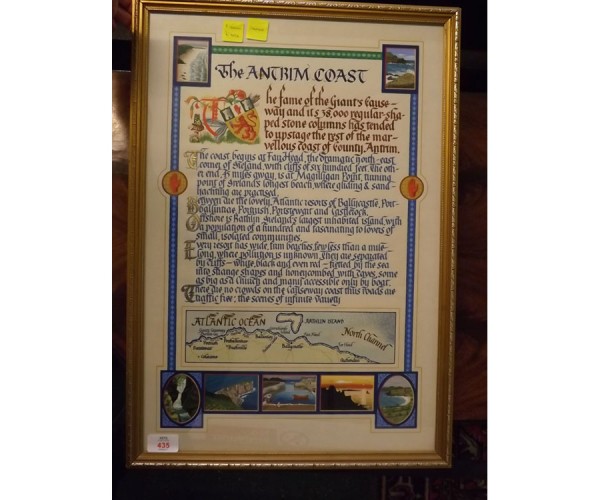 The ANTRIM COAST
The fame of the Giant's Cause-
way and its 38,000 regular-sha-
ped stone columns has tended
to upstage the rest of the mar-
vellous coast of County Antrim.
The coast begins at Fair Head, the dramatic north-east
corner of Ireland, with cliffs of six hundred feet. The oth-
er end, 35 miles away, is at Magilligan Point, turning
point of Ireland's longest beach, where gliding & sand-
yachting are practised.
Between are the lovely Atlantic resorts of Ballycastle, Port-
ballintrae, Portrush, Portstewart and Castlerock.
Offshore is Rathlin, Ireland's largest inhabited island, with
a population of a hundred and fascinating to lovers of
small, isolated communities.
Every resort has wide, fine beaches, few less than a mile
long, where pollution is unknown. They are separated
by cliffs - white, black and even red - fretted by the sea
into strange shapes and honeycombed with caves, some
as big as a church and many accessible only by boat.
There are no crowds on the Causeway coast; the roads are
traffic free; the scenes of infinite variety
ATLANTIC OCEAN
RATHLIN ISLAND
North Channel
435